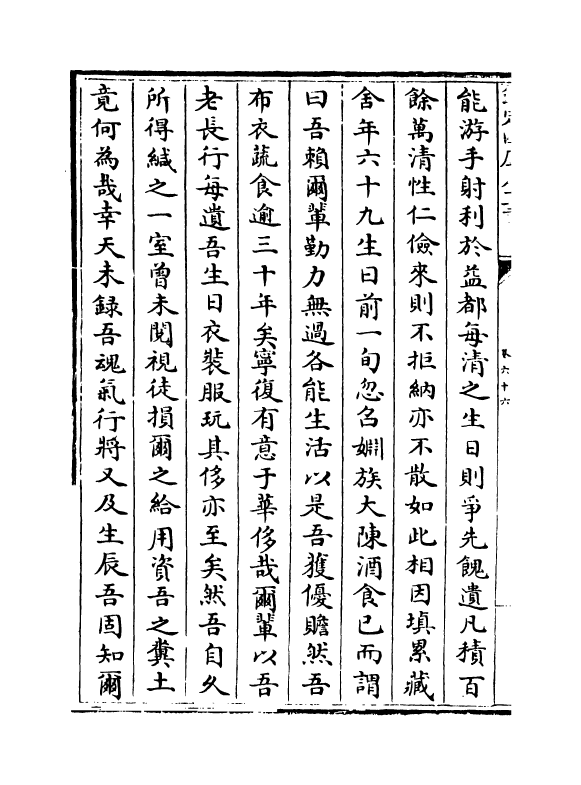 能游手射利於益都每清之生日則爭先餽遺凡積百
餘萬清性仁儉來則不拒納亦不散如此相因填累藏
舍年六十九生日前一旬忽召姻族大陳酒食已而謂
曰吾賴爾輩勤力無過各能生活以是吾獲優贍然吾
布衣蔬食逾三十年矣寧復有意于華侈哉爾輩以吾
老長行每遺吾生日衣裝服玩具侈亦至矣然吾自久
所得緘之一室曾未閱視徒損爾之給用資吾之糞土
竟何為哉幸天未錄吾魂氣行將又及生辰吾固知爾
卷六十六